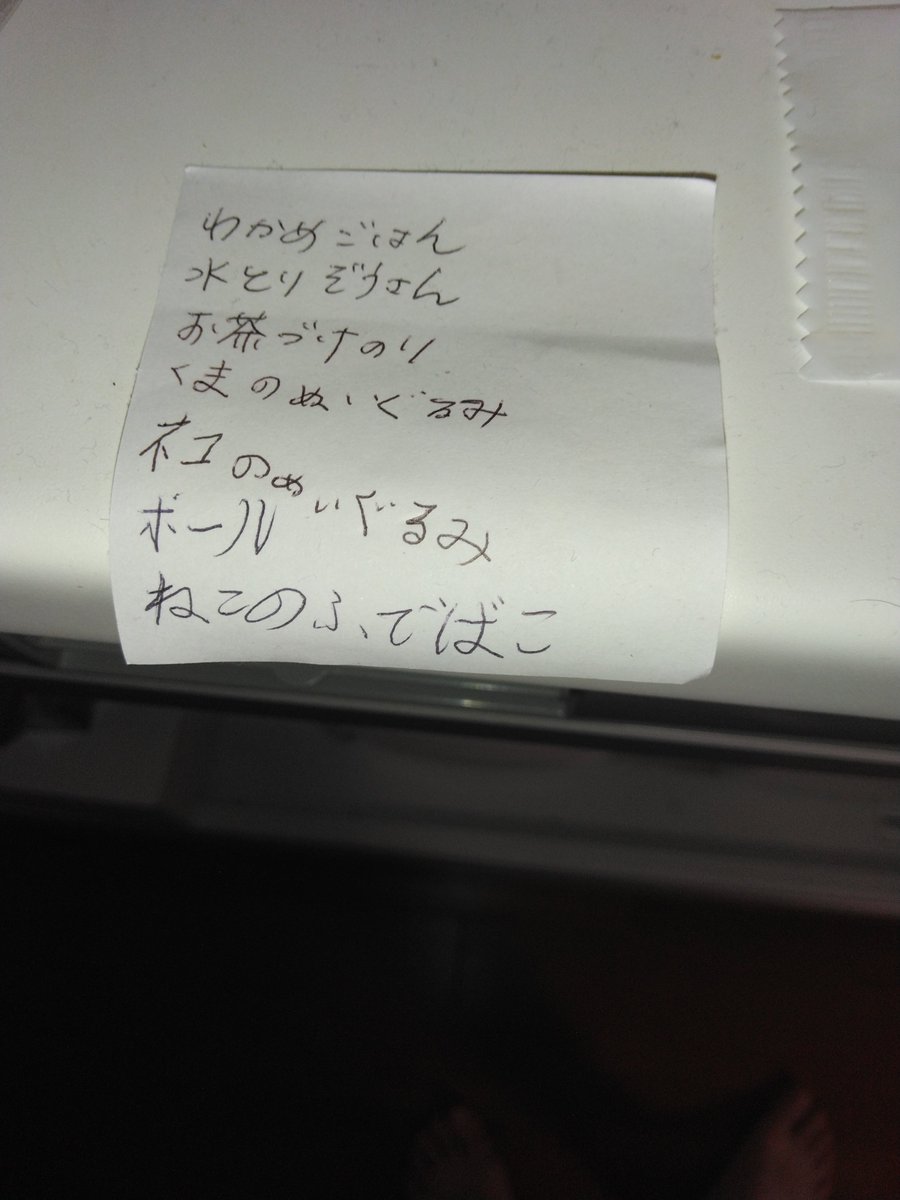 わかめごはん
水とりぞうさん
お茶づけのり
くまのぬいぐるみ
ネコのぬいぐるみ
ボール
ねこのふでばこ